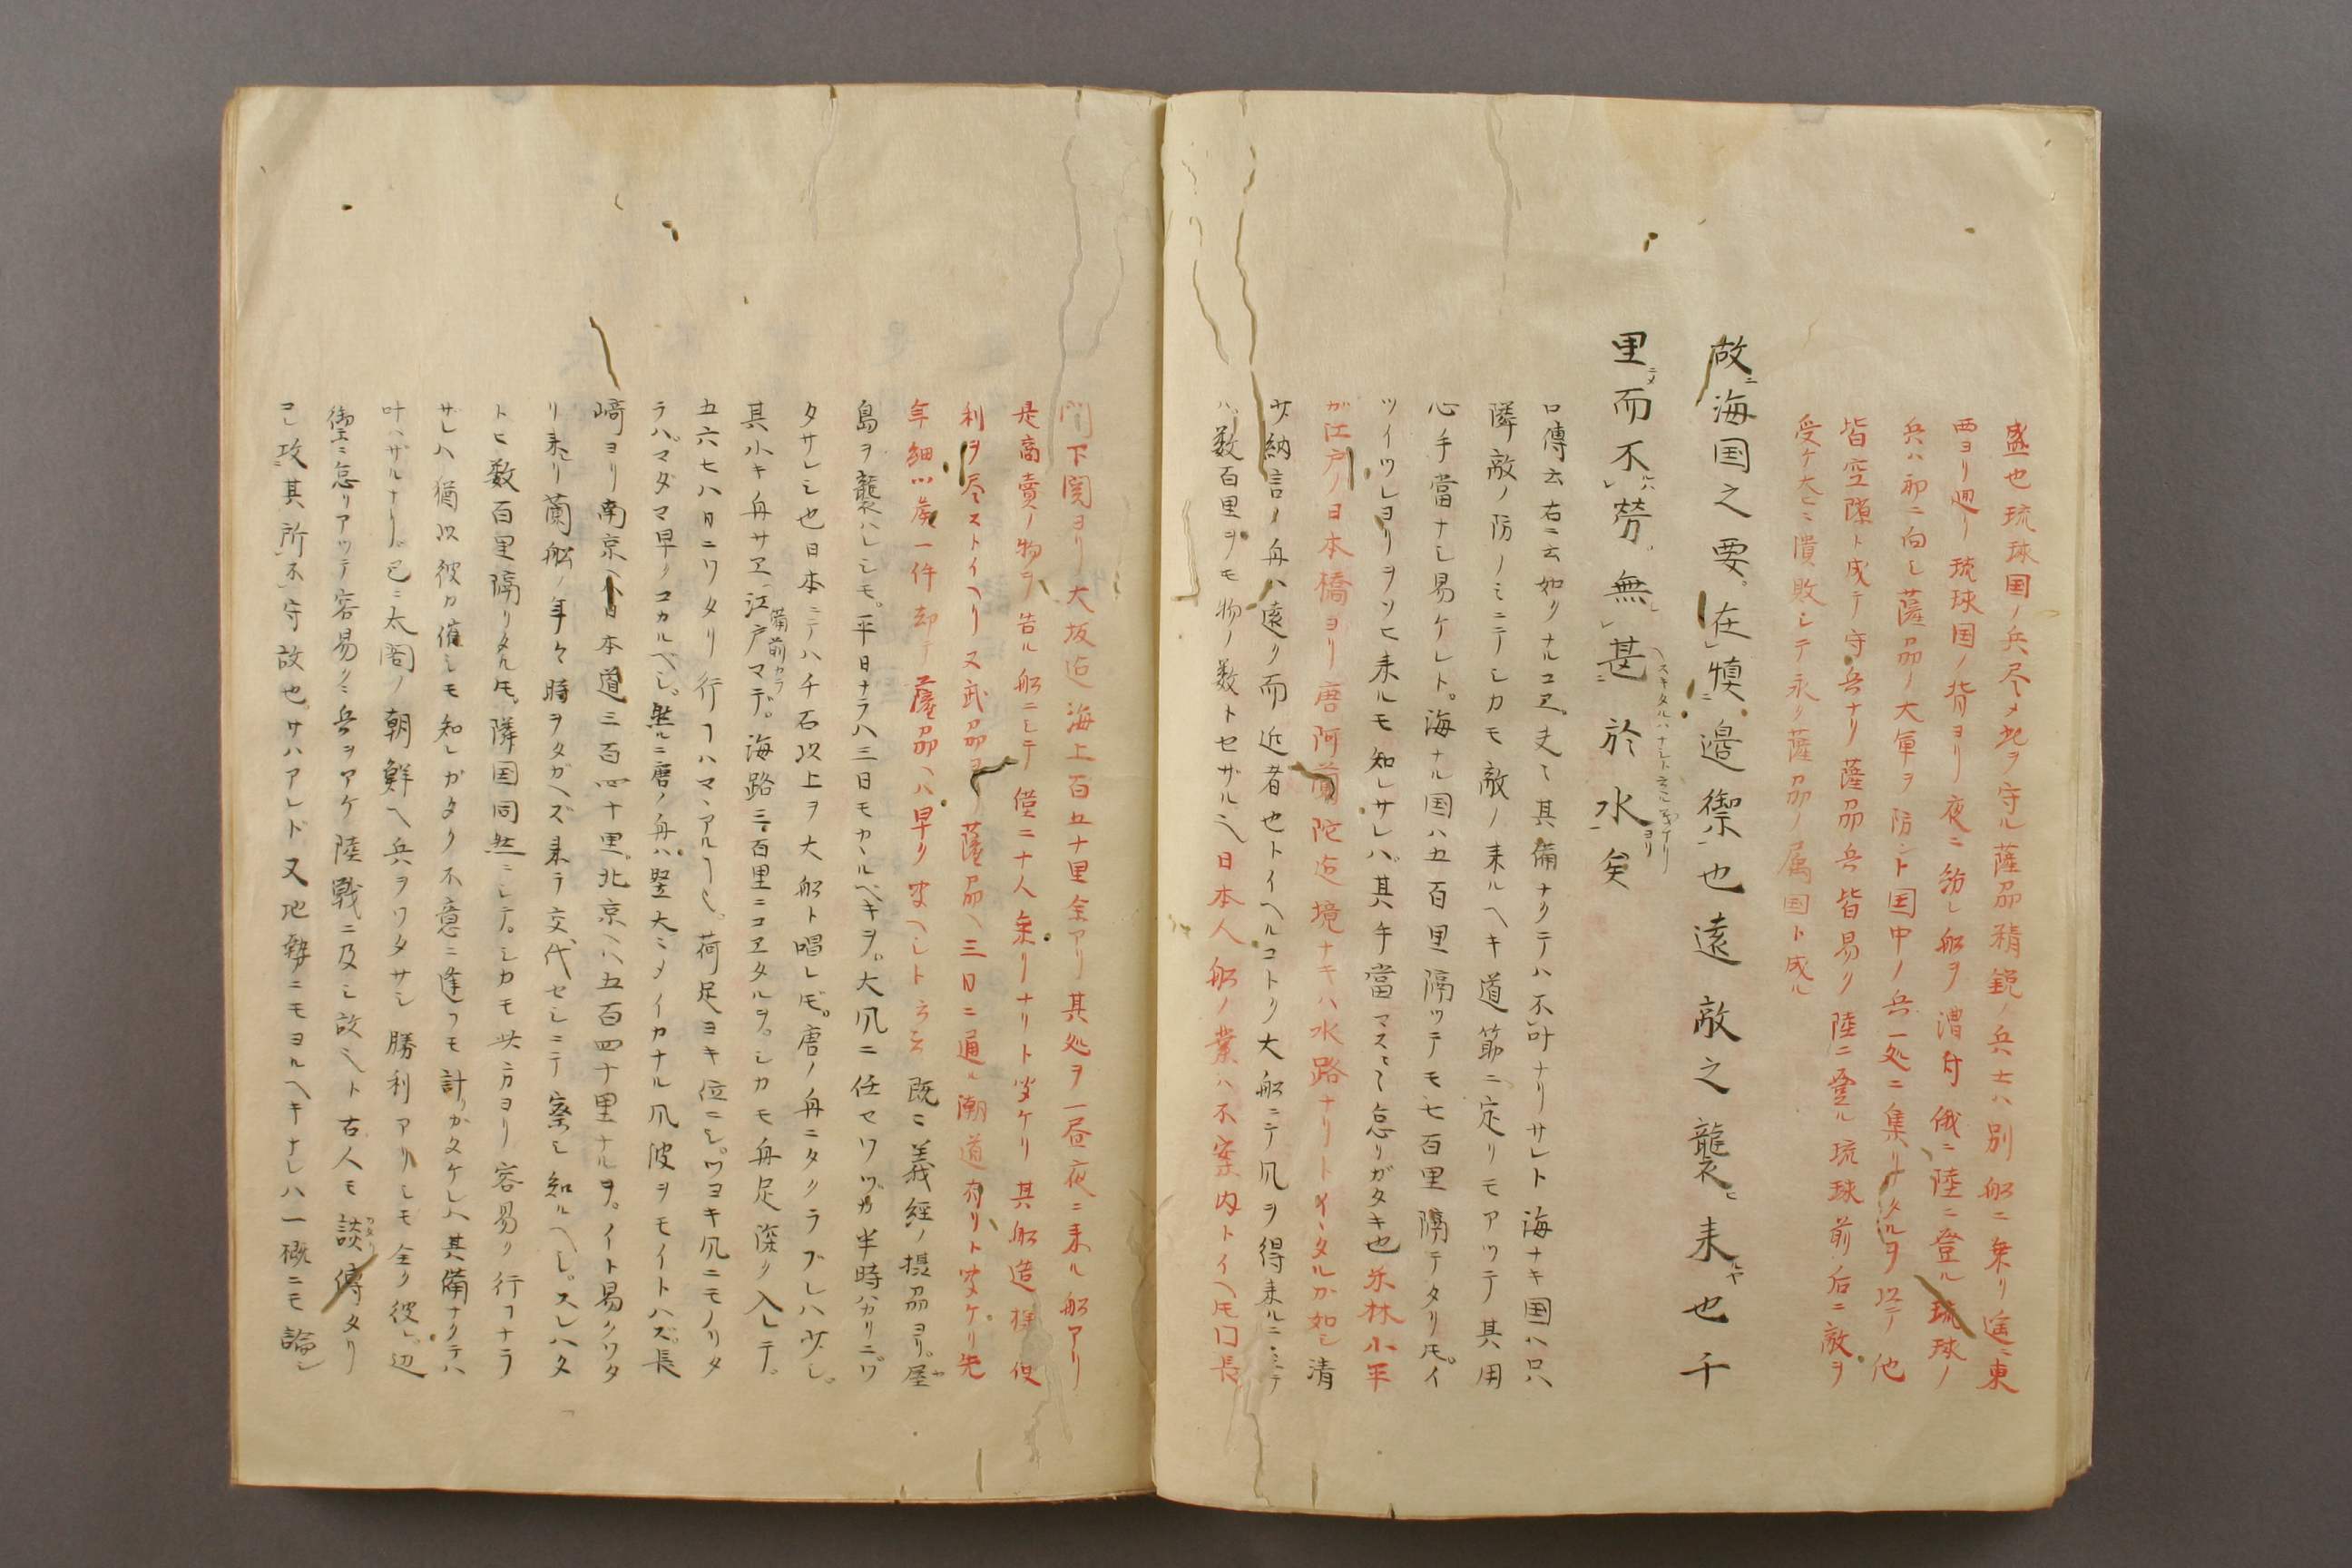 盛也琉球国ノ兵尽メ北ヲ守ル薩刕精鋭ノ兵士ハ別船ニ乗リ遥ニ東
西ヨリ廻リ琉球国ノ背ヨリ夜ニ紛レ船ヲ漕付俄ニ陸ニ登ル琉球ノ
兵ハ初ニ向シ薩刕ノ大軍ヲ防ント国中ノ兵一処ニ集リタルヲ以テ他
皆空隙ト成テ守兵ナリ薩刕兵皆易ク陸ニ登ル琉球前后ニ敵ヲ
受ケ大ニ潰敗シテ永ク薩刕ノ属国ト成ル
故ニ海国之要在慎ニ邊禦也遠敵之襲ヒ来ルヤ也千
里ニメ而不労無甚ニ於水ヨリ矣
口傳云右ニ云如クナルユヱ夫〻其備ナクテハ不叶ナリサレト海ナキ国ハ只
隣敵ノ防ノミニテシカモ敵ノ来ルヘキ道筋ニ定リモアツテ其用
心手當ナシ易ケレト海ナル国ハ五百里隔ツテモ七百里隔テタリ𪜈イ
ツイツレヨリヲソヒ来ルモ知レサレバ其手當マス〻〻怠リガタキ也林小平
ガ江戸ノ日本橋ヨリ唐阿蘭陀迄境ナキハ水路ナリトイヽタルカ如シ清
少納言ノ舟ハ遠クメ而近者也トイヘルコトク大船ニテ凡ヲ得来ルニミテ
ハ数百里ヲモ物ノ数トセザル也日本人船ノ業ハ不案内トイヘ𪜈口長
門下関ヨリ大坂迄海上百五十里余アリ其処ヲ一昼夜ニ来ル船アリ
是商賣ノ物ヲ告ル船ニシテ僅ニ十人乗リナリト聞ケリ其船造様便
利ヲ尽ストイヘリ又武刕ヨリ薩刕ヘ三日ニ通ル潮道有リト聞ケリ先
年細川候一件却テ薩刕ヘハ早ク聞ヘシト云云既ニ義経ノ摂刕ヨリ屋ヤ
島ヲ襲ハレシモ平日ナラハ三日モカヽルベキヲ大凡ニ任セワヅカ半時ハカリニワ
タサレシ也日本ニテハ千石以上ヲ大船ト唱レ𪜈唐ノ舟ニタクラブレハ少シ
其小キ舟サヱ備前カラ江戸マデ海路三百里ニコヱタルヲシカモ舟足深ク入レテ
五六七八日ニワタリ行フハマヽアルヿ也荷足ヨキ位ニシツヨキ凡ニモノリタ
ラバマダマ早クコカルベシ然ルニ唐ノ舟ハ堅大ニメイカナル凡波ヲモイトハズ長
﨑ヨリ南京ヘ日本道三百四十里北京ヘハ五百四十里ナルヲイト易クワタ
リ来リ蘭船ノ年々時ヲタガヘズ来テ交代セシニテ察シ知ルヘシスレハタ
トヒ数百里隔リタル𪜈隣国同然ニシテシカモ此方ヨリ容易ク行フナラ
ザレハ猶以彼カ催シモ知レガタク不意ニ逢フモ計リカタケレハ其備ナクテハ
叶ハザルナリ已ニ太閤ノ朝鮮ヘ兵ヲワタサシ勝利アリシモ全ク彼レ辺
禦ニ怠リアツテ容易ク兵ヲアケ陸戰ニ及シ故也ト古人モ談カタリ傳タリ
コレ攻其所不守故也サハアレド又地勢ニモヨルヘキナレハ一概ニモ論シ